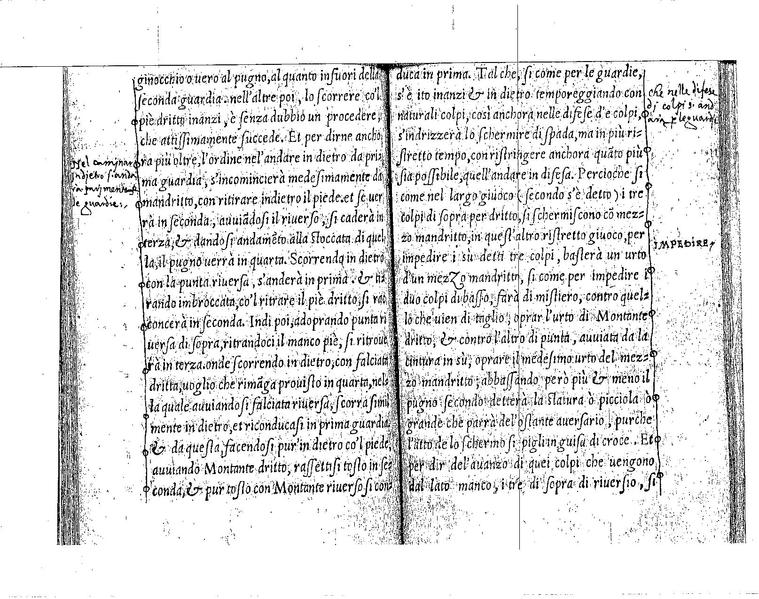 ginocchio o uero al pugno, al quanto in fuori della
seconda guardia. nell'altre poi, lo scorrere co'l
pie dritto inanzi, è senza dubbio un procedere,
che attissimamente succede. Et per dirne ancho
ra più oltre, l'ordine nel'andare in dietro da pri
ma guardia, s'incomincierà medesimamente da
mandritto, con ritirare indietro il piede. et se uer
rà in seconda, auuiādosi il riuerso, si caderà in
terza, & dandosi andamēto alla stoccata di quel
la, il pugno uerrà in quarta. Scorrendo in dietro
con la punta riuersa, s'anderà in prima. & ti=
rando imbroccata, co'l ritrare il piè dritto, si rac
concerà in seconda. Indi poi, adoprando punta ri
uersa di sopra, ritrandoci il manco piè, si ritroue
rà in terza. onde scorrendo in dietro, con falciata
dritta, uoglio che rimāga prouisto in quarta, nel=
la quale auuiandosi falciata riuersa, scorrà simil
mente in dietro, et riconducasi in prima guardia
& da questa, facendosi pur'in dietro co'l piede,
auuiando Montante dritto, rassettisi tosto in se=
conda, & pur tosto con Montante riuerso si con=
Nel caminar
indietro
le guardie.
duca in prima. Tal che, si come per le guardie,
s'è ito inanzi & in dietro temporeggiando con
naturali colpi, così anchora nelle difese d'e colpi,
s'indrizzerà lo schermire di spada, ma in più ri=
stretto tempo, con ristringere anchora quāto più
sia possibile, quell'andare in difesa. Percioche si
come nel largo giuoco (secondo s'è detto) i tre
colpi di sopra per dritto, si schermiscono cō mez=
zo mandritto, in quest'altro ristretto giuoco, per
impedire i su detti tre colpi, basterà un urto
d'un mezzo mandritto, si come per impedire i
duo colpi di basso, farà di mistiero, contro quel=
lo che uien di taglio, oprar l'urto di Montante
dritto, & contro l'altro di punta, auuiata da la
cintura in sù, oprare il medesimo urto del mez=
zo mandritto, abbassando però più & meno il
pugno secondo detterà la statura ò picciola ò
grande che parrà del'ostante auersario, purche
l'atto de lo schermo si pigli in guisa di croce. Et
per dir del'auanzo di quei colpi che uengono
dal lato manco, i tre di sopra di riuersio, si
che nelle difese
di colpi si and
IMPEDIRE